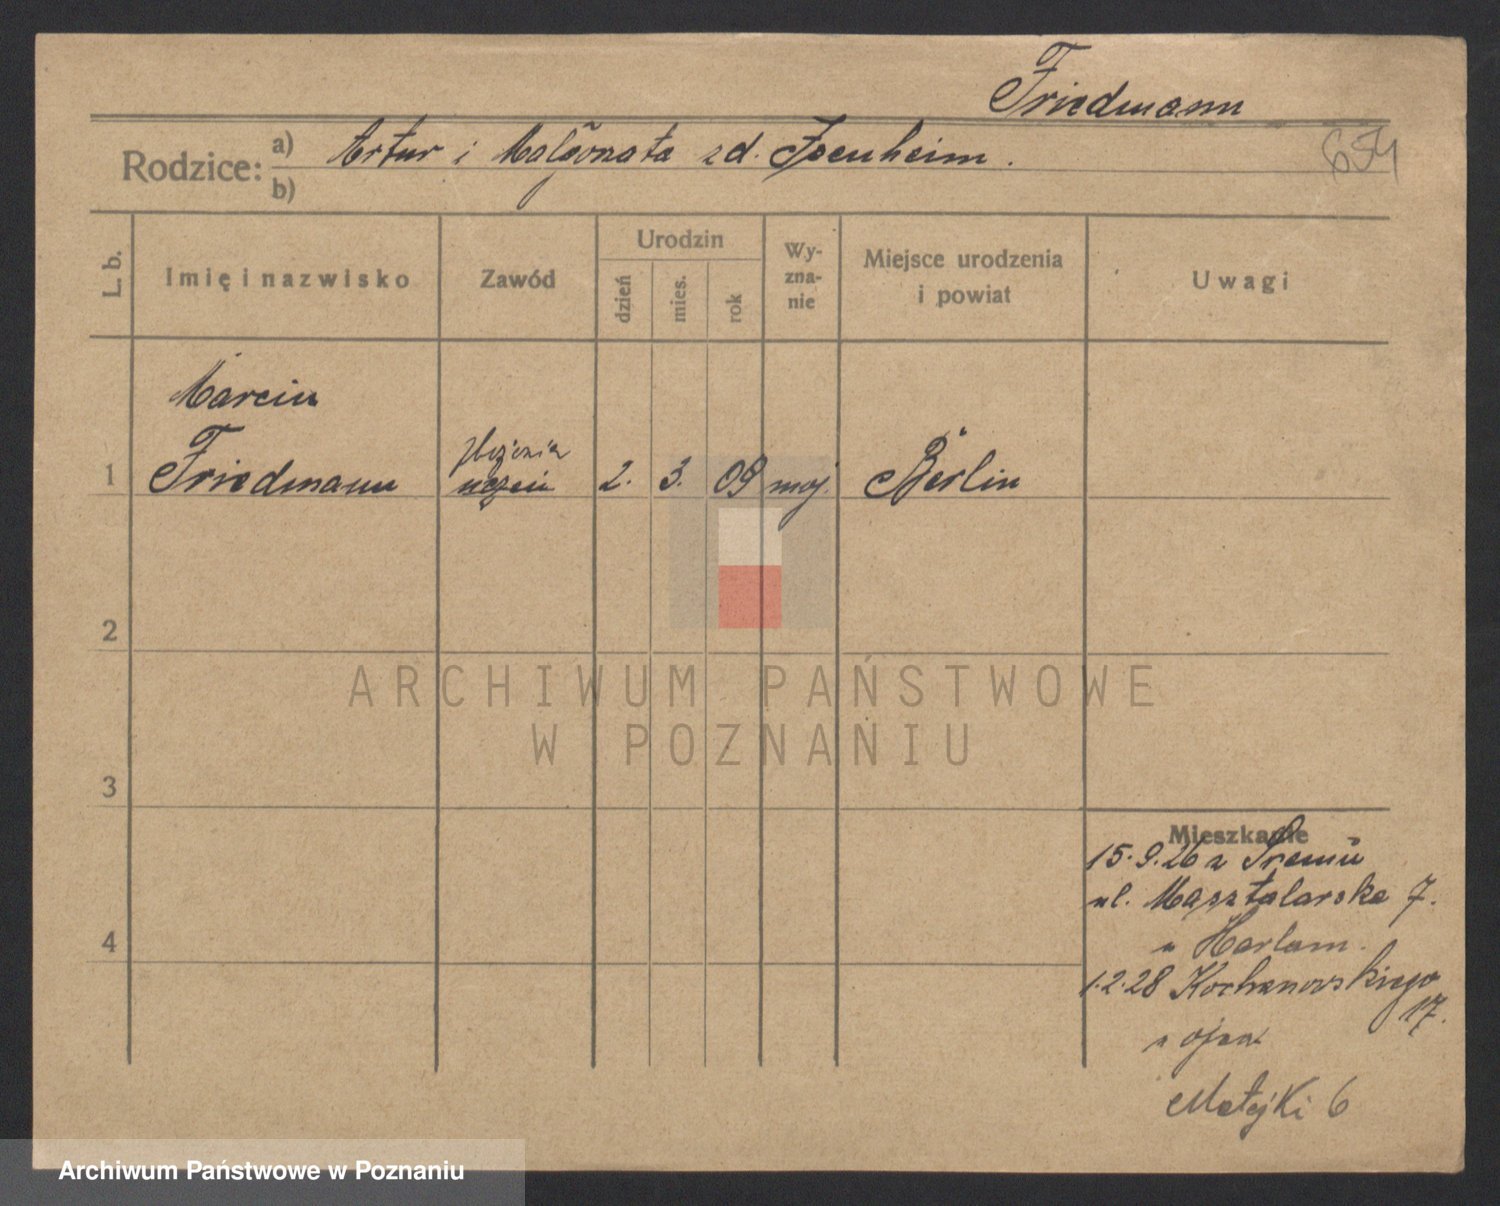 Friedmann
654
Rodzice: a) Artur i Małgorzata z d. Isenheim.
b)
L. b.
Imię i nazwisko
Zawód
Urodzin
dzień
mies.
rok
Wy-
zna-
nie
Miejsce urodzenia
i powiat
Uwagi
Marcin
1 Friedmann uczeń 2. 3. 09 moj. Berlin
2
3
4
ARCHIWUM PAŃSTWOWE
W POZNANIU
Mieszkanie
15.9.26 z Śremu
ul. Masztalarska 7.
u Harlam.
1.2.28 Kochanowskiego
17.
u ojca
Matejki 6
Archiwum Państwowe w Poznaniu